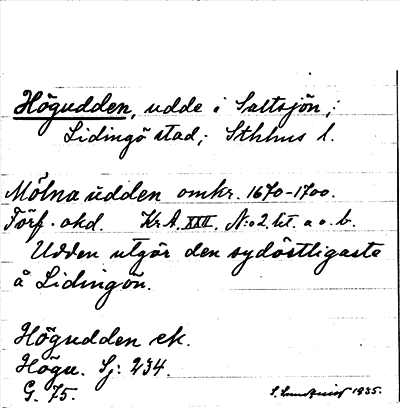 Högudden, udde i Saltsjön,
Lidingö stad, Sthlms l.
Mölna udden omkr. 1670-1700.
Förf. okd. Kr A. XXII, N:o 2 lit. a o. b.
Udden utgör den sydöstligaste
å Lidingön.
Högudden ek.
Högu. Sj: 234.
G. 75.
1935.